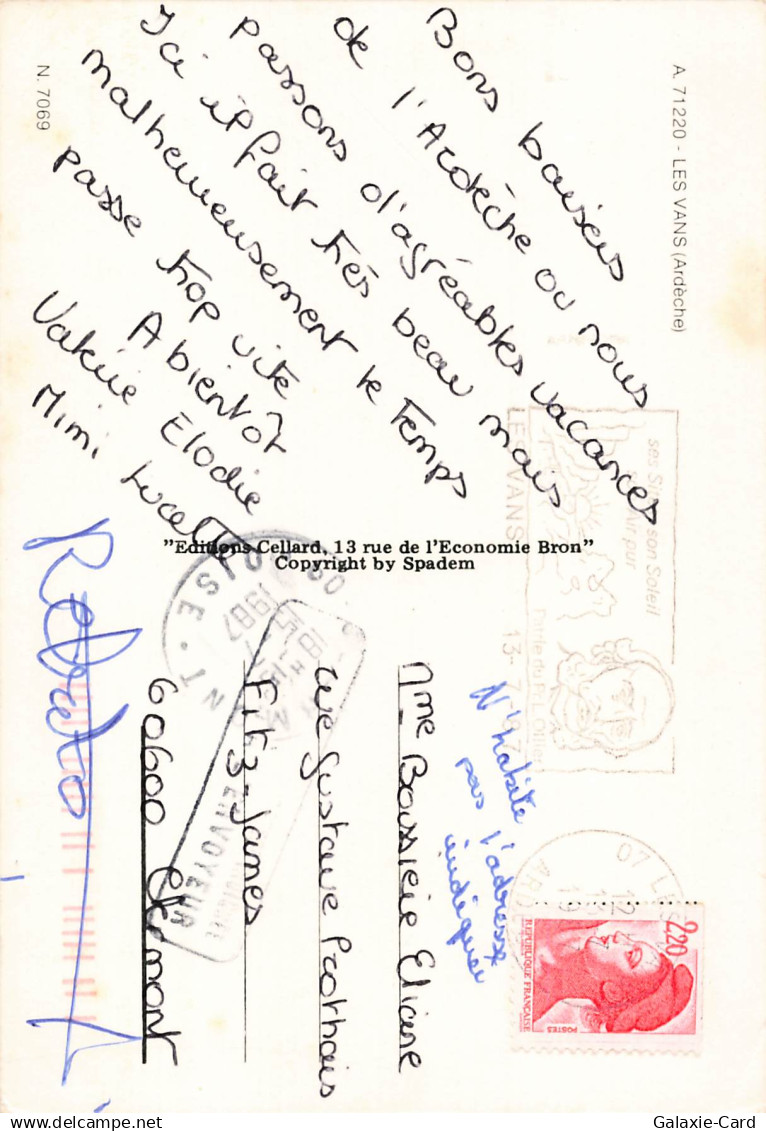 A. 71220 - LES VANS (Ardèche)
N. 7069
Bons baisers
de l'Ardèche ou nous
passons d'agréables vacances
Ici il fait très beau mais
malheureusement le temps
passe trop vite
A bientôt
Valérie Elodie
Mimi Lucette
"Editions Cellard, 13 rue de l'Economie Bron"
Copyright by Spadem
ses Sites son Soleil
Air pur
LES VANS
Patrie du Pr L. Ollier
13-7
07 LES
12
19
2,20
REPUBLIQUE FRANÇAISE
POSTES
OISE
1987
ENVOYEUR
N'habite
pas l'adresse
indiquée
Mme Boissieie Eliane
rue Gustave Prothais
Fitz-James
60600 Clermont
Galaxie-Card